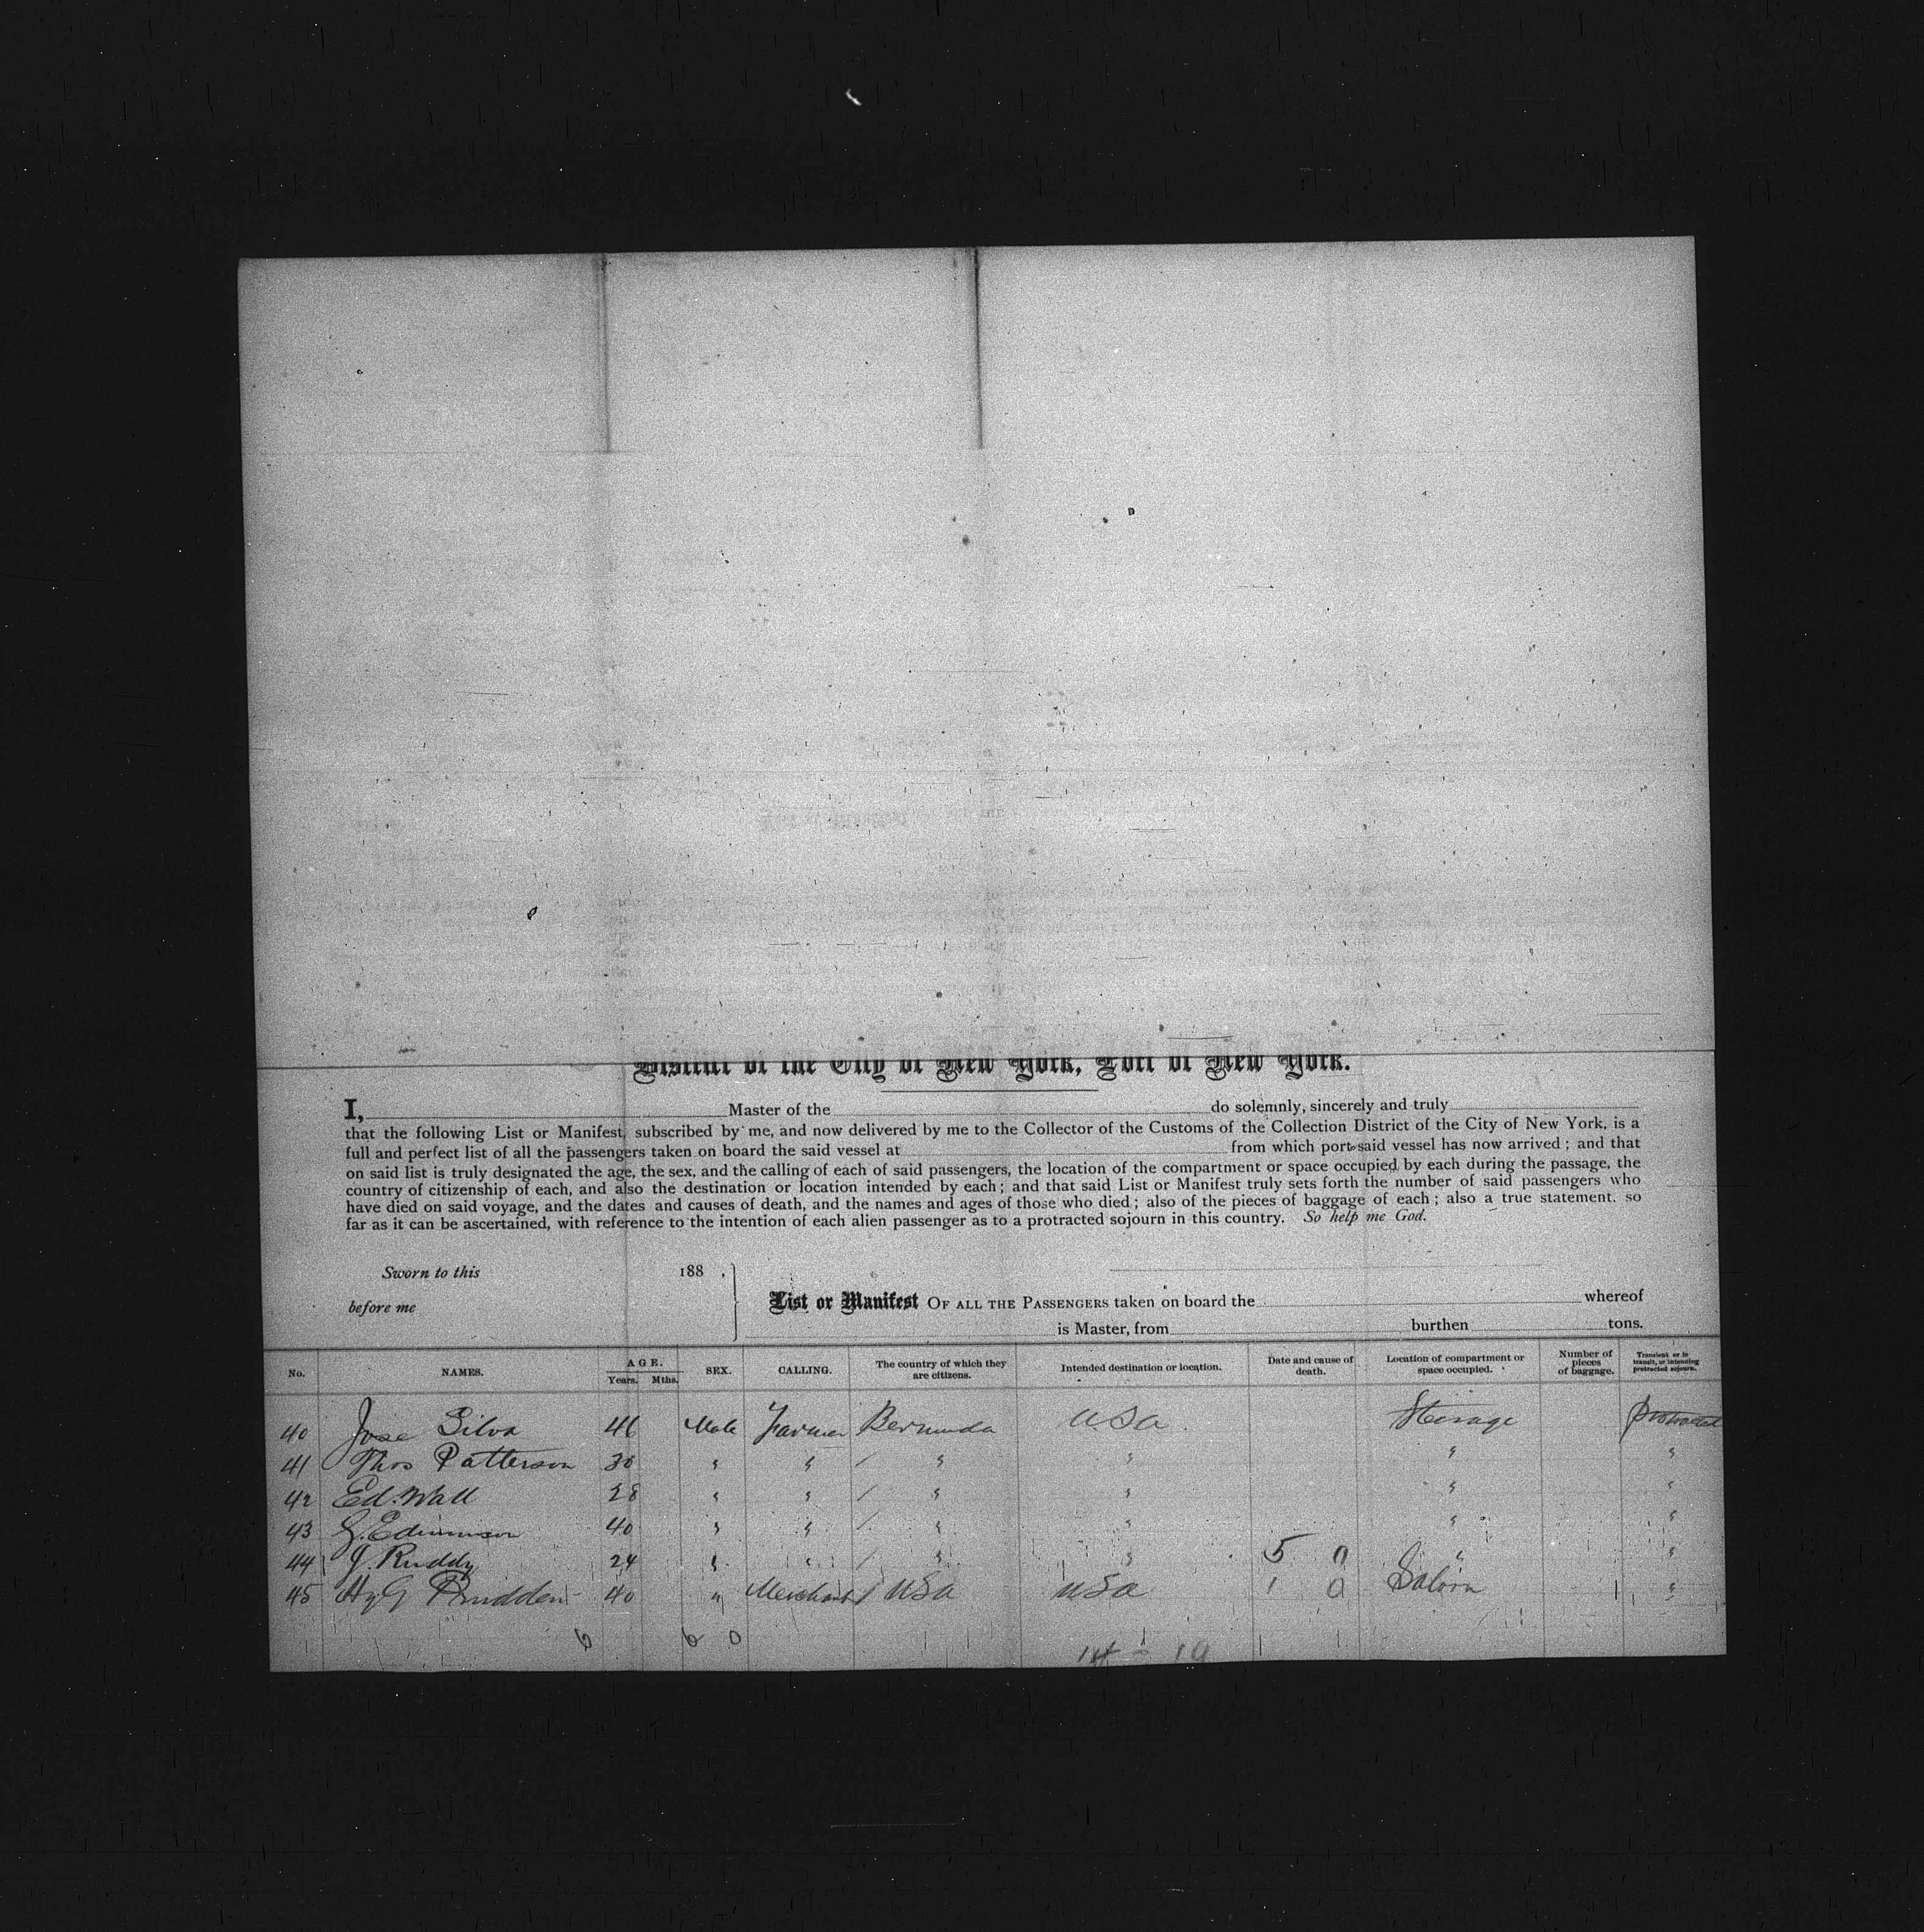 District of the City of New York, Port of New York.
I, Master of the do solemnly, sincerely and truly
that the following List or Manifest, subscribed by me, and now delivered by me to the Collector of the Customs of the Collection District of the City of New York, is a
full and perfect list of all the passengers taken on board the said vessel at from which port said vessel has now arrived ; and that
on said list is truly designated the age, the sex, and the calling of each of said passengers, the location of the compartment or space occupied by each during the passage, the
country of citizenship of each, and also the destination or location intended by each ; and that said List or Manifest truly sets forth the number of said passengers who
have died on said voyage, and the dates and causes of death, and the names and ages of those who died ; also of the pieces of baggage of each ; also a true statement, so
far as it can be ascertained, with reference to the intention of each alien passenger as to a protracted sojourn in this country. So help me God.
Sworn to this 188 ,
before me
List or Manifest OF ALL THE PASSENGERS taken on board the whereof
is Master, from burthen tons.
No. NAMES. AGE. Years. Mths. SEX. CALLING. The country of which they are citizens. Intended destination or location. Date and cause of death. Location of compartment or space occupied. Number of pieces of baggage. Transient or in transit, or intending protracted sojourn.
40 Jose Silva 46 Male Farmer Bermuda USA Steerage Protracted
41 Thos Patterson 30 " " / " " " "
42 Ed. Wall 28 " " / " " " "
43 40 " " / " " " "
44 J. Ruddy 24 " " / " " 5 0 " "
45 Hy G Prudden 40 " Merchant / USA USA 1 0 Saloon 1 "
6 6 0